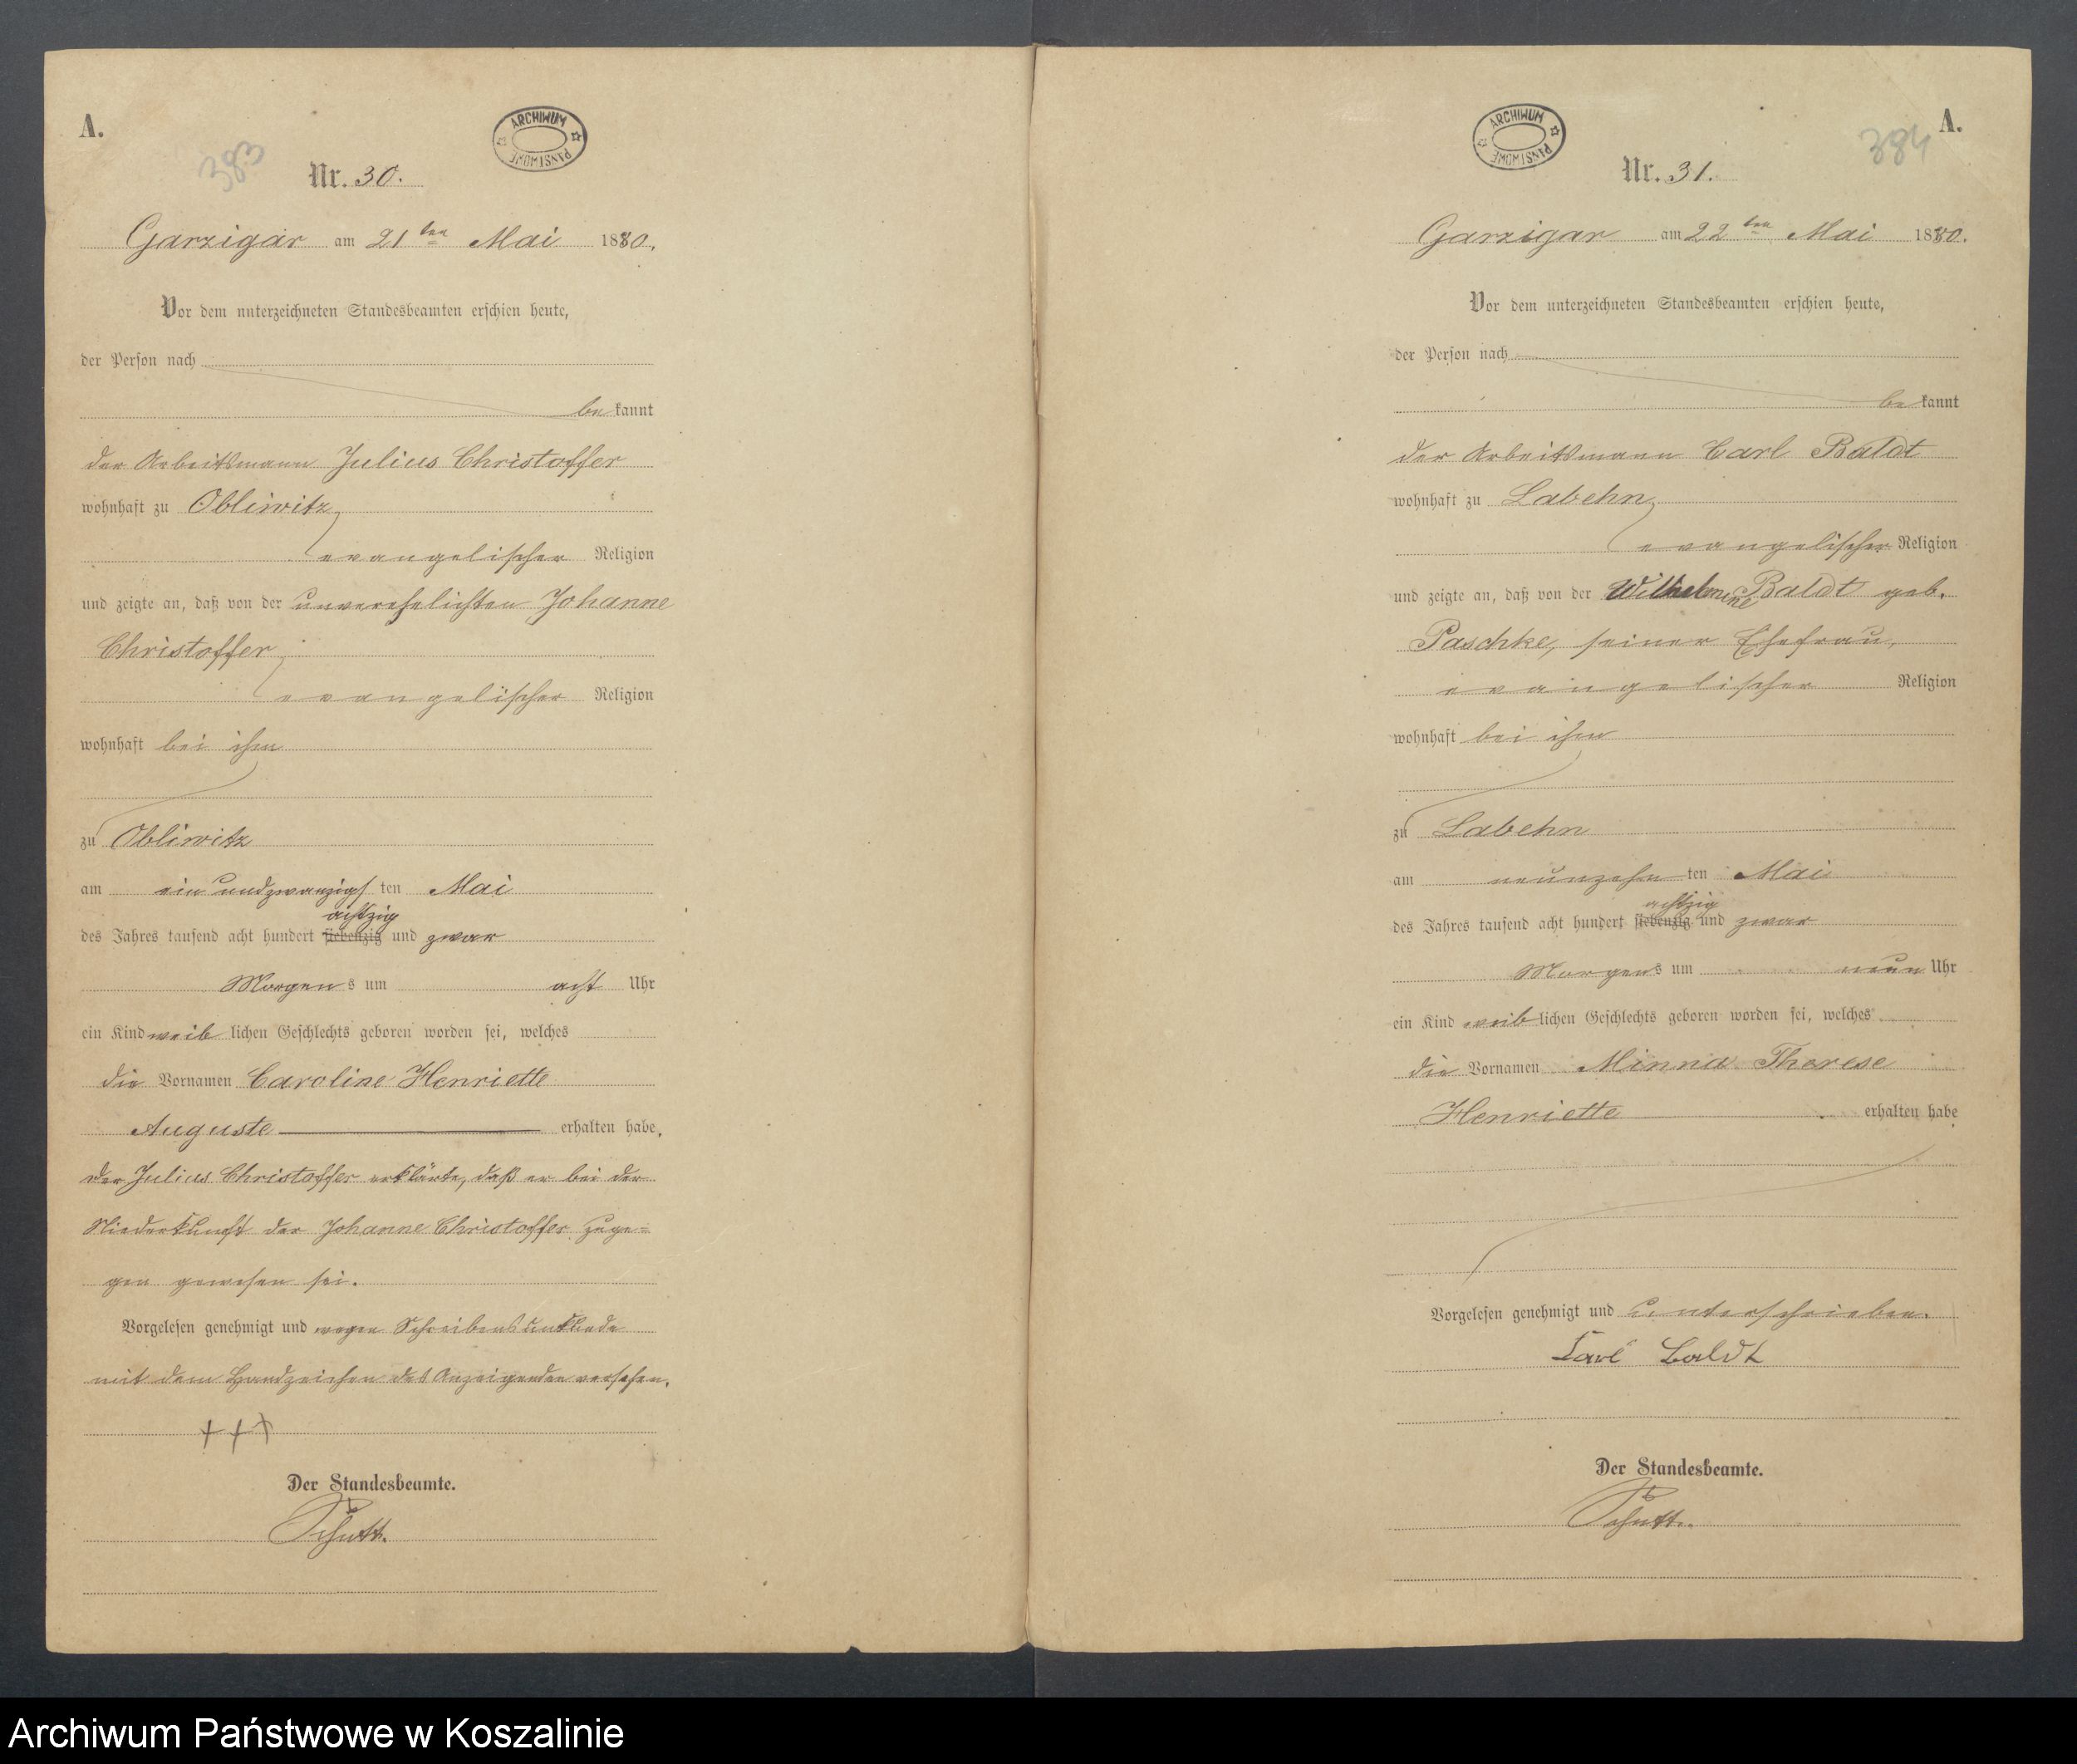 A.
383
ARCHIWUM PAŃSTWOWE
Nr. 30.
Garzigar am 21ten Mai 1880.
Vor dem unterzeichneten Standesbeamten erschien heute,
der Person nach
bekannt
der Arbeitsmann Julius Christoffer
wohnhaft zu Obliwitz,
evangelischer Religion
und zeigte an, daß von der unverehelichten Johanne
Christoffer,
evangelischer Religion
wohnhaft bei ihm
zu Obliwitz
am ein und zwanzigsten Mai
achtzig
des Jahres tausend acht hundert siebenzig und zwar
Morgens um acht Uhr
ein Kind weiblichen Geschlechts geboren worden sei, welches
die Vornamen Caroline Henriette
Auguste erhalten habe,
der Julius Christoffer erklärte, daß er bei der
Niederkunft der Johanne Christoffer zuge=
gen gewesen sei.
Vorgelesen genehmigt und wegen Schreibensunkunde
mit dem Handzeichen des Anzeigenden versehen.
+++
Der Standesbeamte.
Schutt.
A.
384
ARCHIWUM PAŃSTWOWE
Nr. 31.
Garzigar am 22ten Mai 1880.
Vor dem unterzeichneten Standesbeamten erschien heute,
der Person nach
bekannt
der Arbeitsmann Carl Baldt
wohnhaft zu Labehn,
evangelischer Religion
und zeigte an, daß von der Wilhelmine Baldt geb.
Paschke, seiner Ehefrau,
evangelischer Religion
wohnhaft bei ihm
zu Labehn
am neunzehnten Mai
achtzig
des Jahres tausend acht hundert siebenzig und zwar
Morgens um neun Uhr
ein Kind weiblichen Geschlechts geboren worden sei, welches
die Vornamen Minna Therese
Henriette erhalten habe
Vorgelesen genehmigt und unterschrieben.
Carl Baldt
Der Standesbeamte.
Schutt.
Archiwum Państwowe w Koszalinie